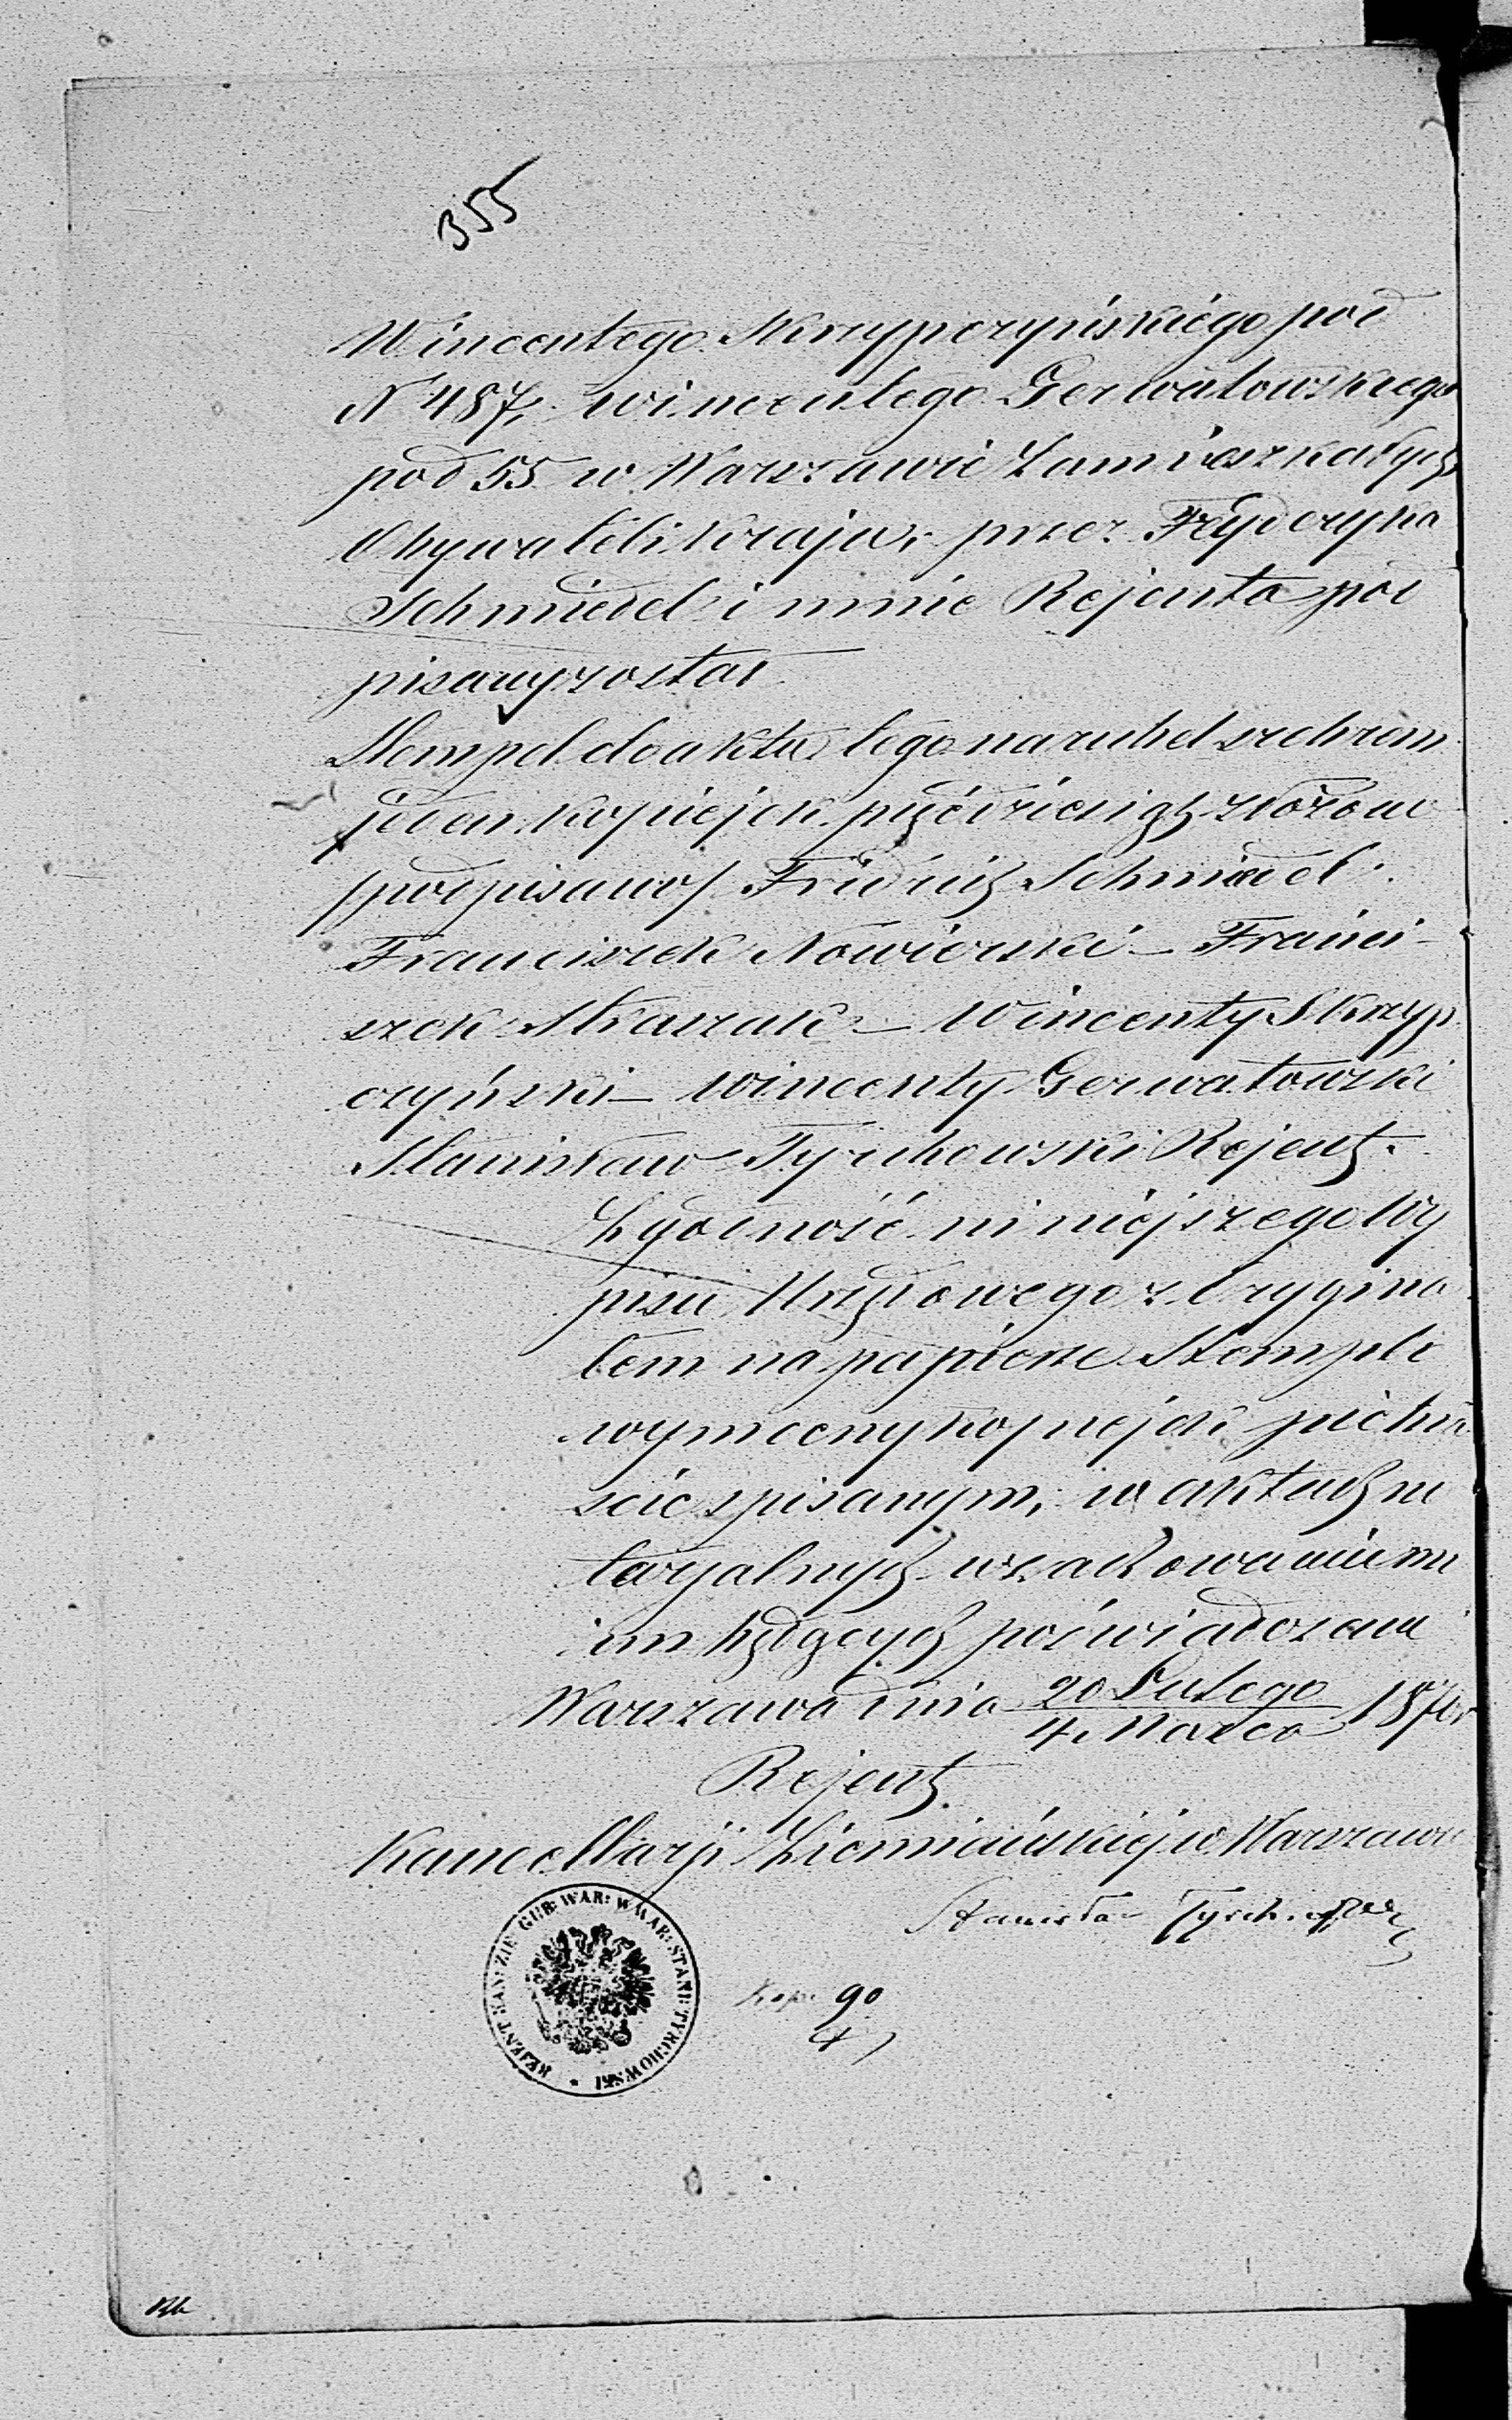 355
Wincentego Skrzypczyńskiego pod
N 487, Wincentego Gerwatowskiego
pod 55 w Warszawie zamieszkałych
Obywateli kraju, przez Fryderyka
Schmiedel i mnie Rejenta pod
pisany został
Stempel do aktu tego na rubel srebrem
jeden kopiejek pięćdziesiąt złożono
/podpisano/ Fridrich Schmiedel.
Franciszek Nowierski – Franci-
szek Staszak – Wincenty Skrzyp
czyński – Wincenty Gerwatowski
Stanisław Tyrchowski Rejent.
Zgodność niniejszego Wy
pisu Urzędowego z Orygina
łem na papierze Stemplo
wym ceny kopiejek piętna
ście spisanym, w aktach no
taryalnych w zachowaniu mo
im będących poświadczam
Warszawa dnia 20 Lutego / 4 Marca 1870 r
Rejent
Kancellarji Ziemiańskiéj w Warszawie
Stanisław Tyrchowski
REJENT KAN: ZIE: GUB: WAR: W WAR: STANI: TYRCHOWSKI
Kop. 90